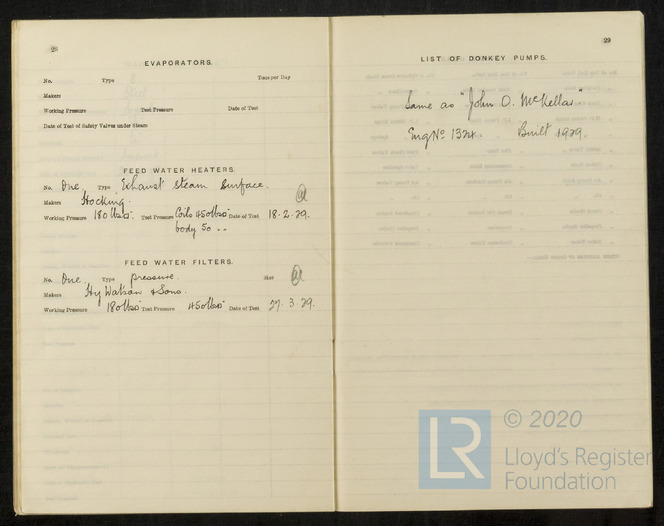 28
EVAPORATORS.
No. Type Tons per Day
Makers
Working Pressure Test Pressure Date of Test
Date of Test of Safety Valves under Steam
FEED WATER HEATERS.
No. One. Type Exhaust Steam Surface.
Makers Hocking.
Working Pressure 180 lbs. Test Pressure Coils 450 lbs Date of Test 18.2.29.
body 50 ..
FEED WATER FILTERS.
No. One. Type pressure. Size
Makers Hy Watson & Sons.
Working Pressure 180 lbs Test Pressure 450 lbs Date of Test 27.3.29.
29
LIST OF DONKEY PUMPS.
Same as "John O. McKellar"
Eng No 1324. Built 1929.
LR
© 2020
Lloyd's Register
Foundation